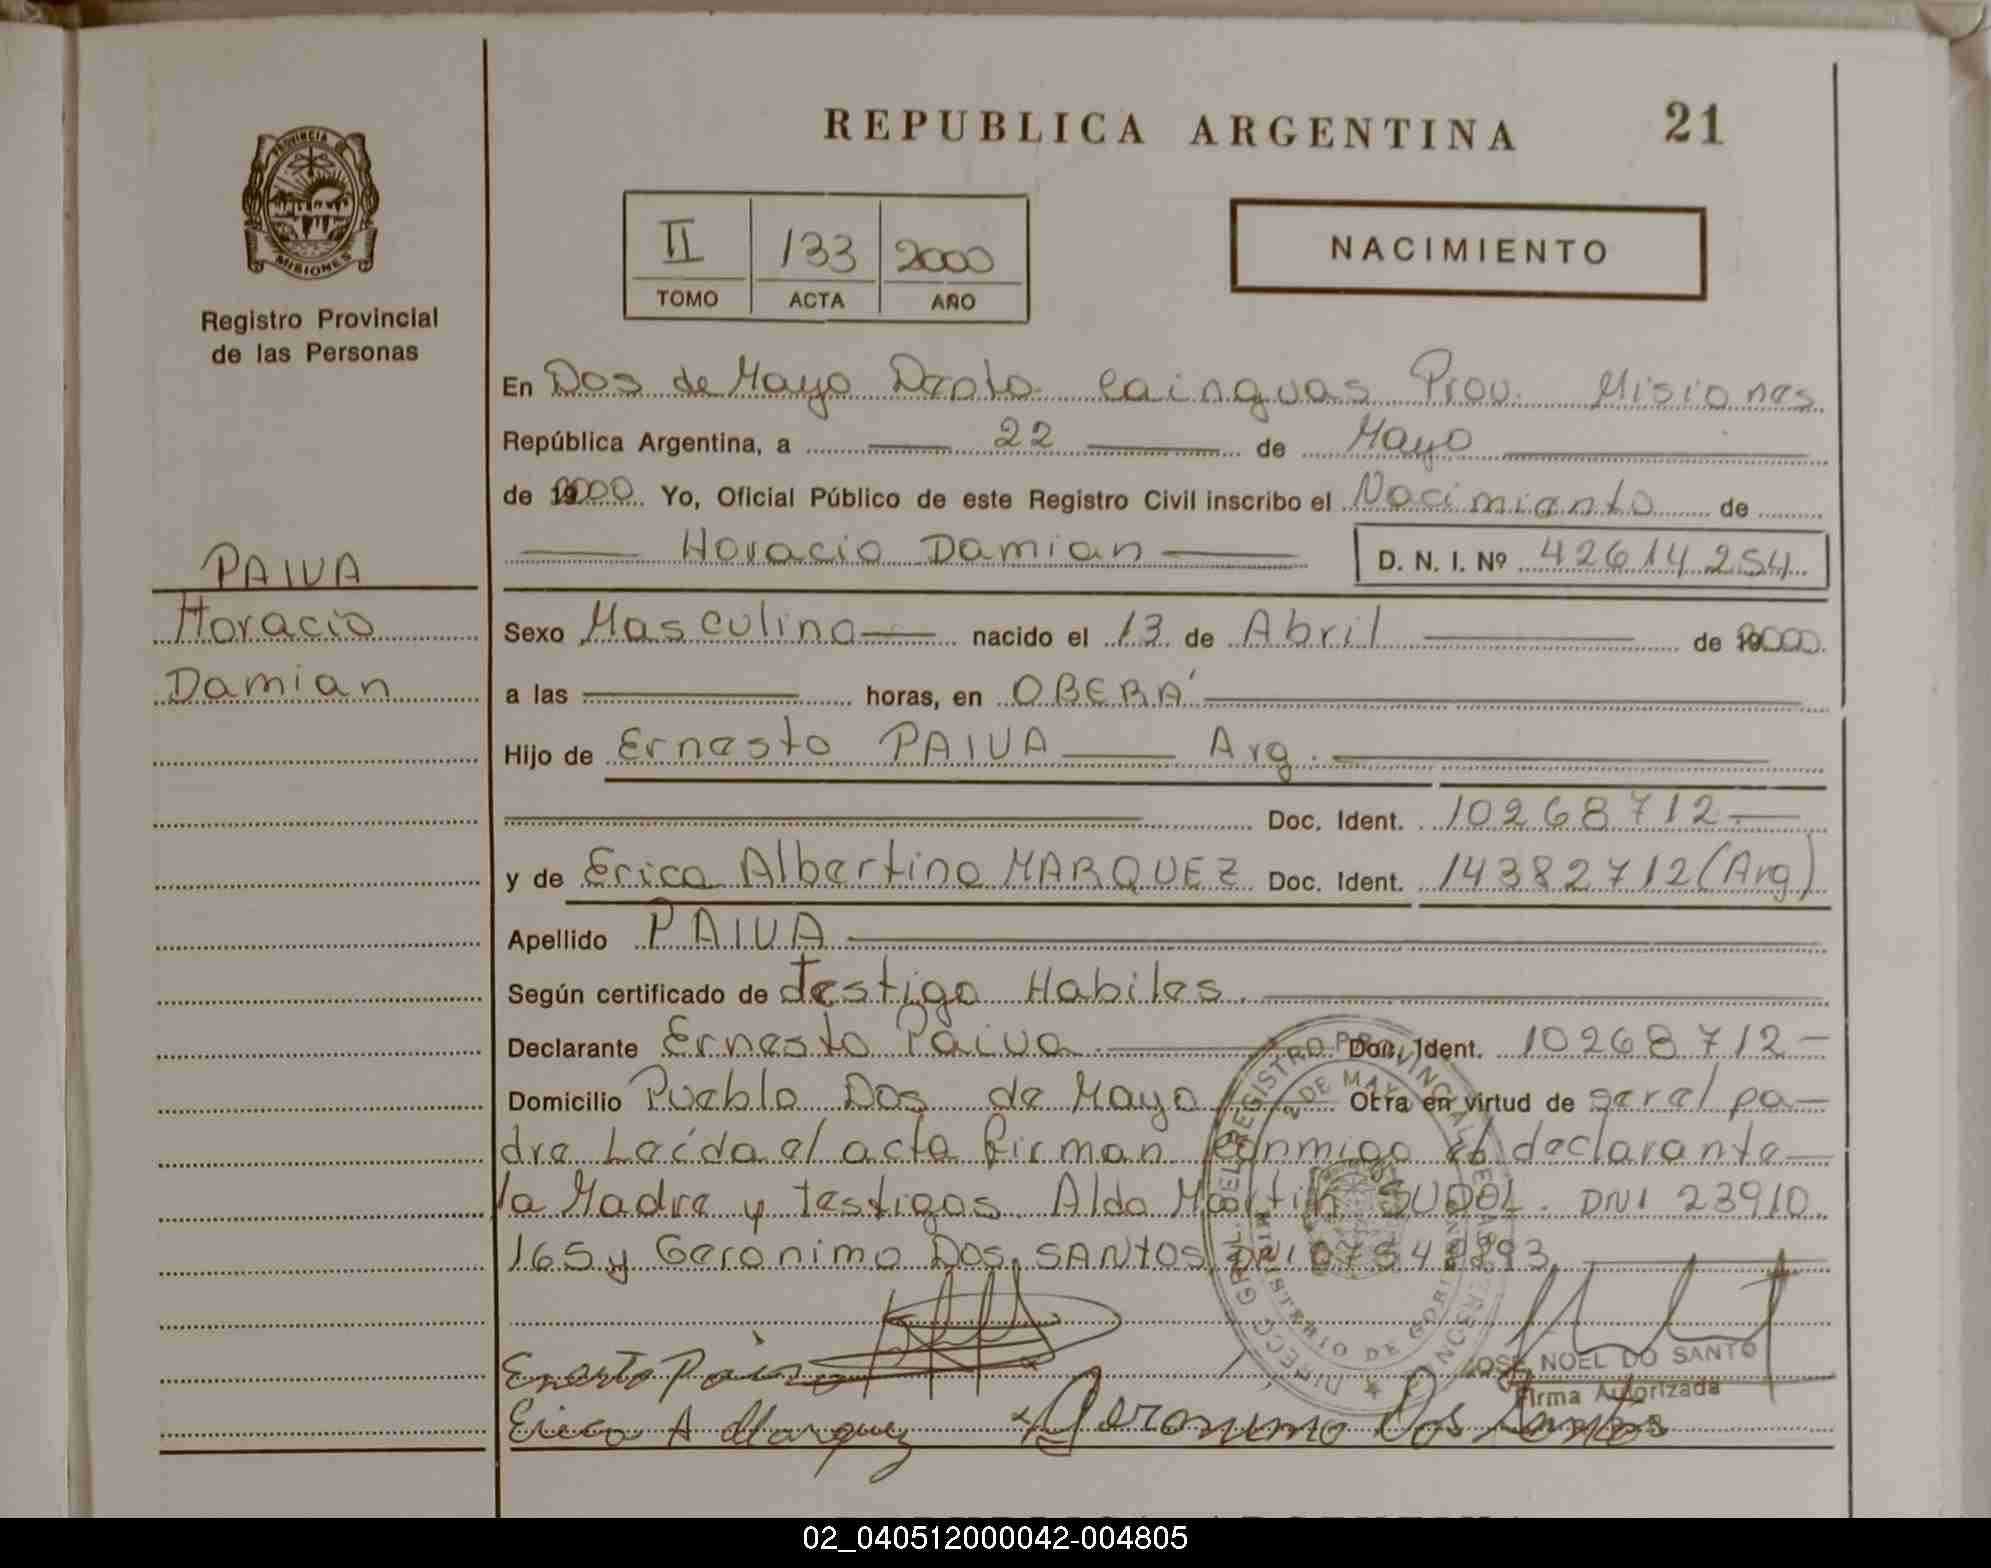 REPUBLICA ARGENTINA
21
PROVINCIA DE
MISIONES
Registro Provincial
de las Personas
II 133 2000
TOMO ACTA AÑO
NACIMIENTO
En Dos de Mayo Dpto. Cainguas Prov. Misiones
República Argentina, a 22 de Mayo
de 2000 Yo, Oficial Público de este Registro Civil inscribo el Nacimiento de
Horacio Damian D. N. I. Nº 42614254
PAIVA
Horacio
Damian
Sexo Masculino nacido el 13 de Abril de 2000
a las horas, en OBERÁ
Hijo de Ernesto PAIVA Arg.
Doc. Ident. 10268712
y de Erica Albertina MARQUEZ Doc. Ident. 14382712 (Arg)
Apellido PAIVA
Según certificado de testigo Habiles
Declarante Ernesto Paiva Doc. Ident. 10268712
Domicilio Pueblo Dos de Mayo Obra en virtud de ser el pa-
dre Leída el acta firman conmigo el declarante
la Madre y testigos Aldo Martin SUDOL. DNI 23910
165 y Geronimo DOS SANTOS DNI
Ernesto Paiva
JOSE NOEL DO SANTO
Firma Autorizada
Erica A Marquez Geronimo Dos Santos
02_040512000042-004805